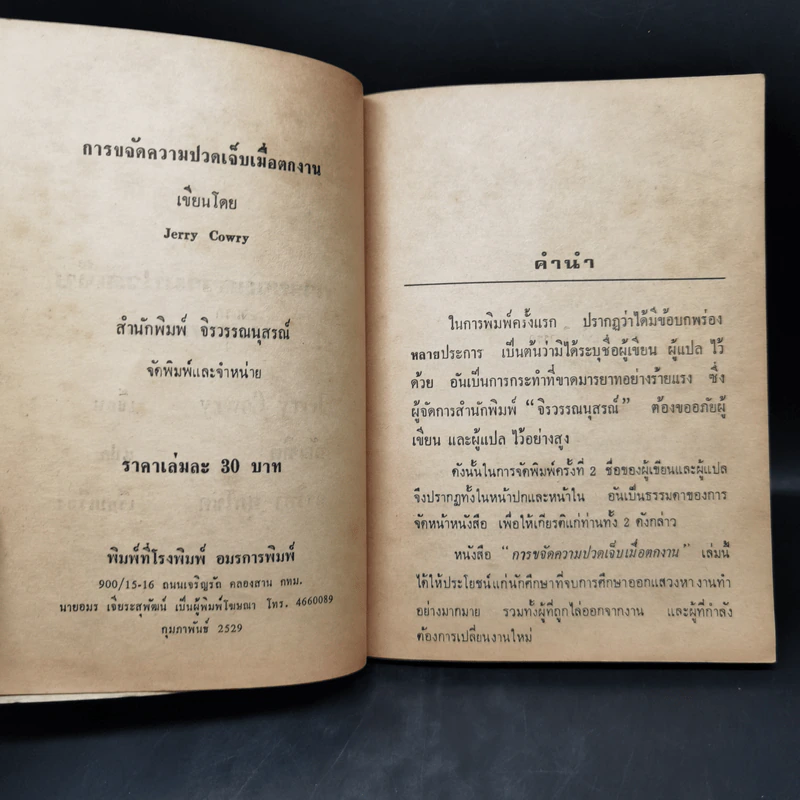 การขจัดความปวดเจ็บเมื่อตกงาน
เขียนโดย
Jerry Cowry
สำนักพิมพ์ จิรวรรณนุสรณ์
จัดพิมพ์และจำหน่าย
ราคาเล่มละ 30 บาท
พิมพ์ที่โรงพิมพ์ อมรการพิมพ์
900/15-16 ถนนเจริญรัถ คลองสาน กทม.
นายอมร เจียระสุพัฒน์ เป็นผู้พิมพ์โฆษณา โทร. 4660089
กุมภาพันธ์ 2529
คำนำ
ในการพิมพ์ครั้งแรก ปรากฏว่าได้มีข้อบกพร่อง
หลายประการ เป็นต้นว่ามิได้ระบุชื่อผู้เขียน ผู้แปล ไว้
ด้วย อันเป็นการกระทำที่ขาดมารยาทอย่างร้ายแรง ซึ่ง
ผู้จัดการสำนักพิมพ์ “จิรวรรณนุสรณ์” ต้องขออภัยผู้
เขียน และผู้แปล ไว้อย่างสูง
ดังนั้นในการจัดพิมพ์ครั้งที่ 2 ชื่อของผู้เขียนและผู้แปล
จึงปรากฏทั้งในหน้าปกและหน้าใน อันเป็นธรรมดาของการ
จัดหน้าหนังสือ เพื่อให้เกียรติแก่ท่านทั้ง 2 ดังกล่าว
หนังสือ “การขจัดความปวดเจ็บเมื่อตกงาน” เล่มนี้
ได้ให้ประโยชน์แก่นักศึกษาที่จบการศึกษาออกแสวงหางานทำ
อย่างมากมาย รวมทั้งผู้ที่ถูกไล่ออกจากงาน และผู้ที่กำลัง
ต้องการเปลี่ยนงานใหม่